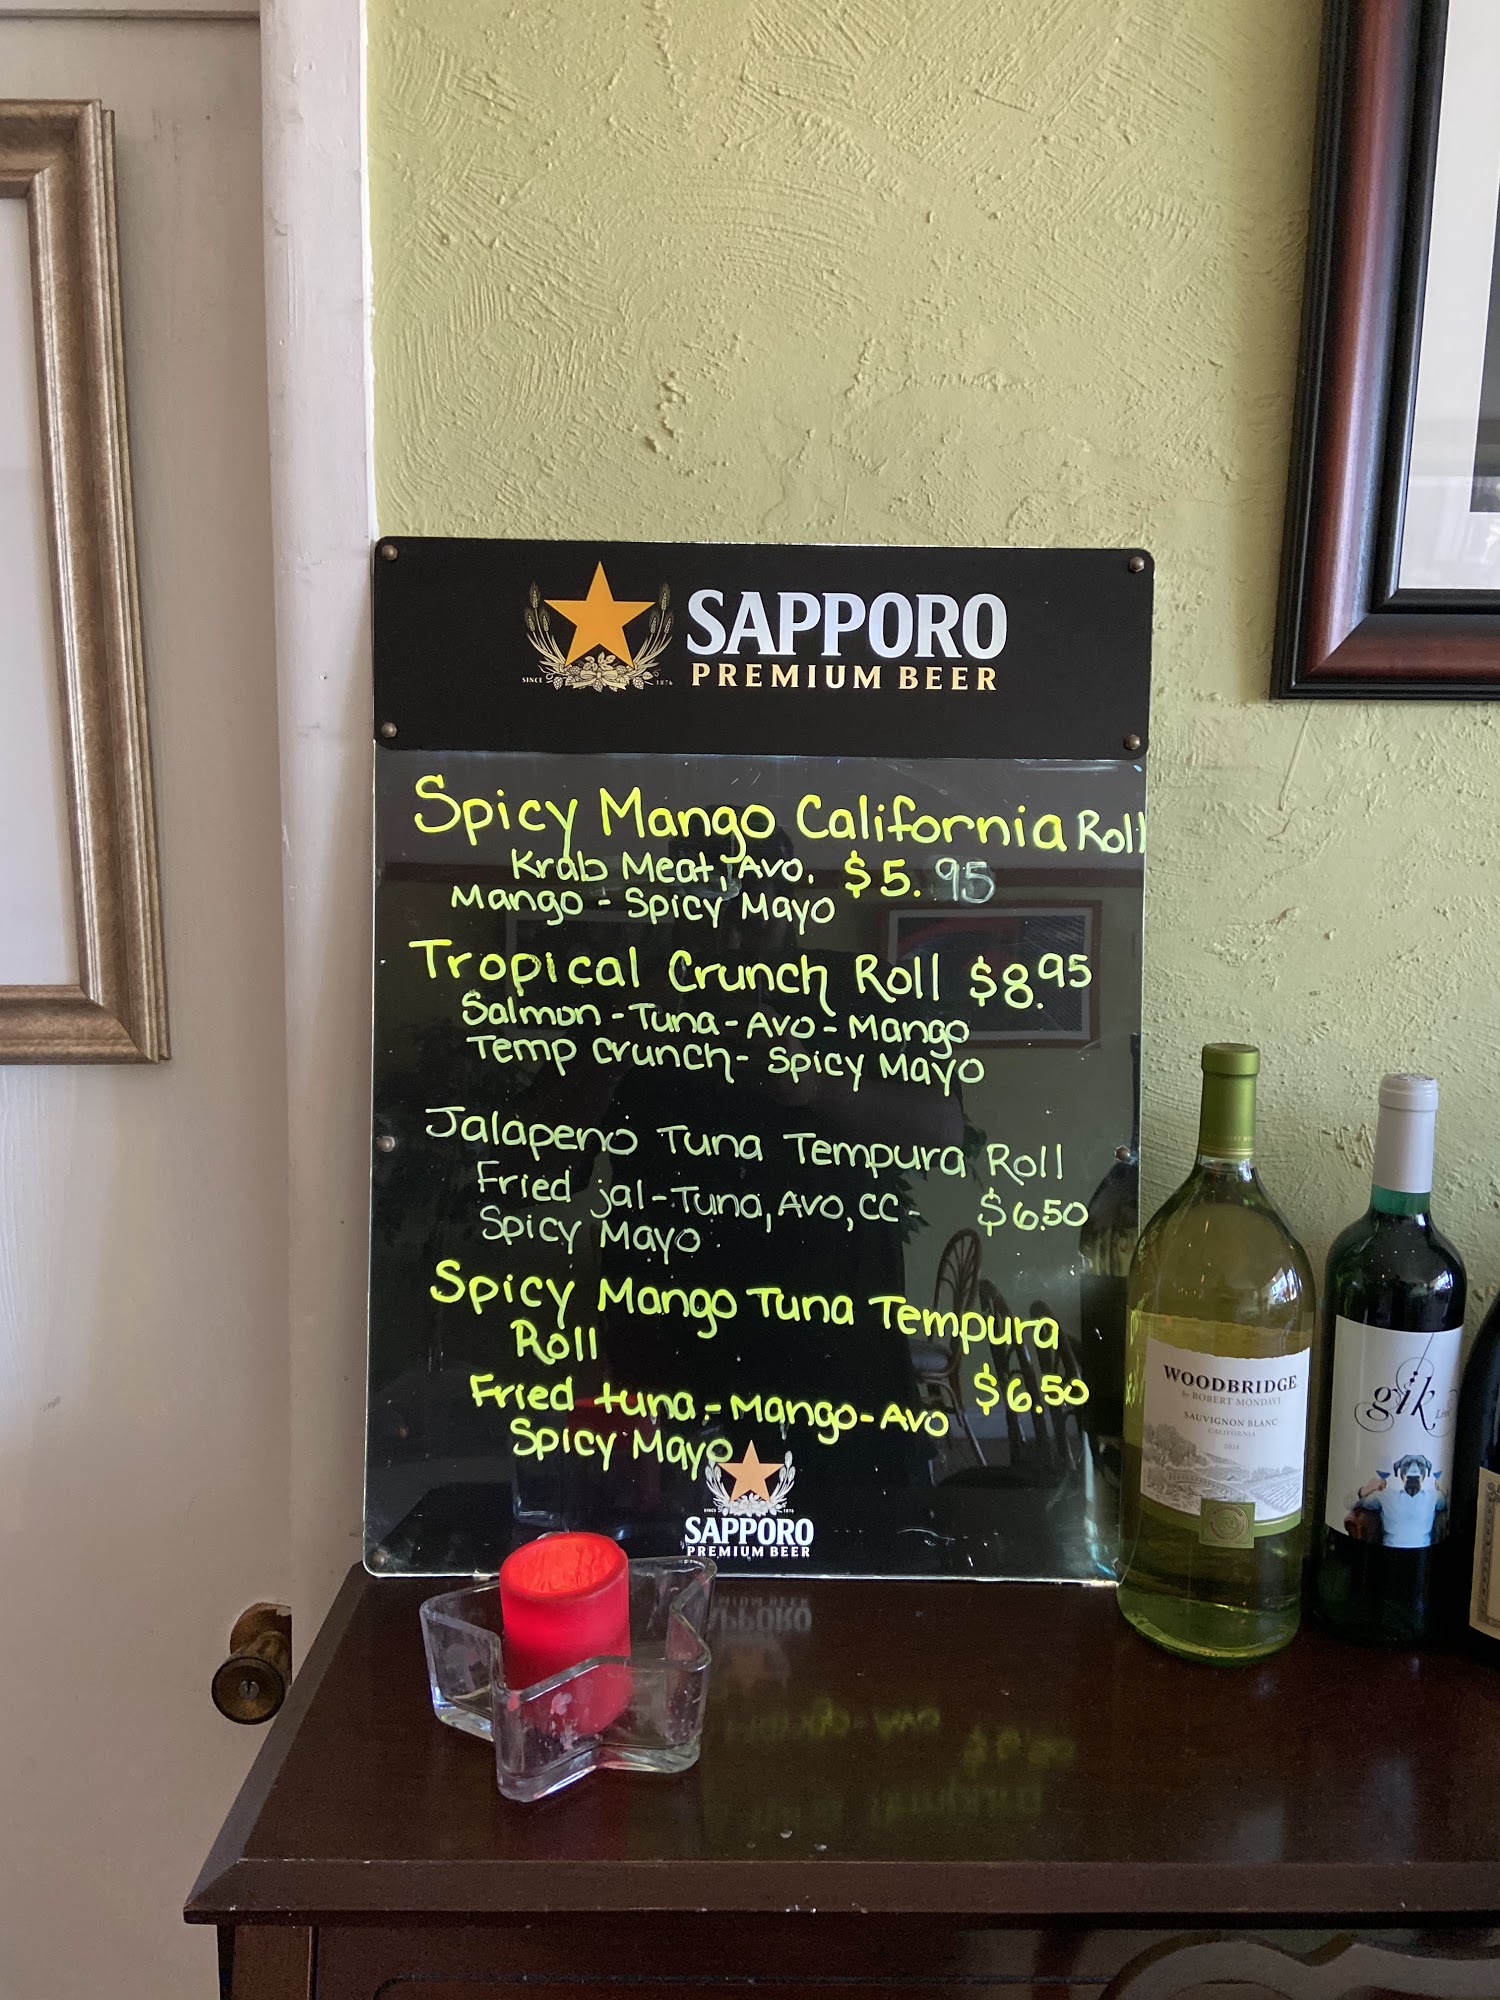 SAPPORO
PREMIUM BEER
SINCE 1876
Spicy Mango California Roll
Krab Meat, Avo. $5.95
Mango - Spicy Mayo
Tropical Crunch Roll $8.95
Salmon - Tuna - Avo - Mango
Temp crunch - Spicy Mayo
Jalapeno Tuna Tempura Roll
Fried jal - Tuna, Avo, CC - $6.50
Spicy Mayo
Spicy Mango Tuna Tempura
Roll
Fried tuna - Mango - Avo $6.50
Spicy Mayo
SINCE 1876
SAPPORO
PREMIUM BEER
WOODBRIDGE
by ROBERT MONDAVI
SAUVIGNON BLANC
CALIFORNIA
2018
gik